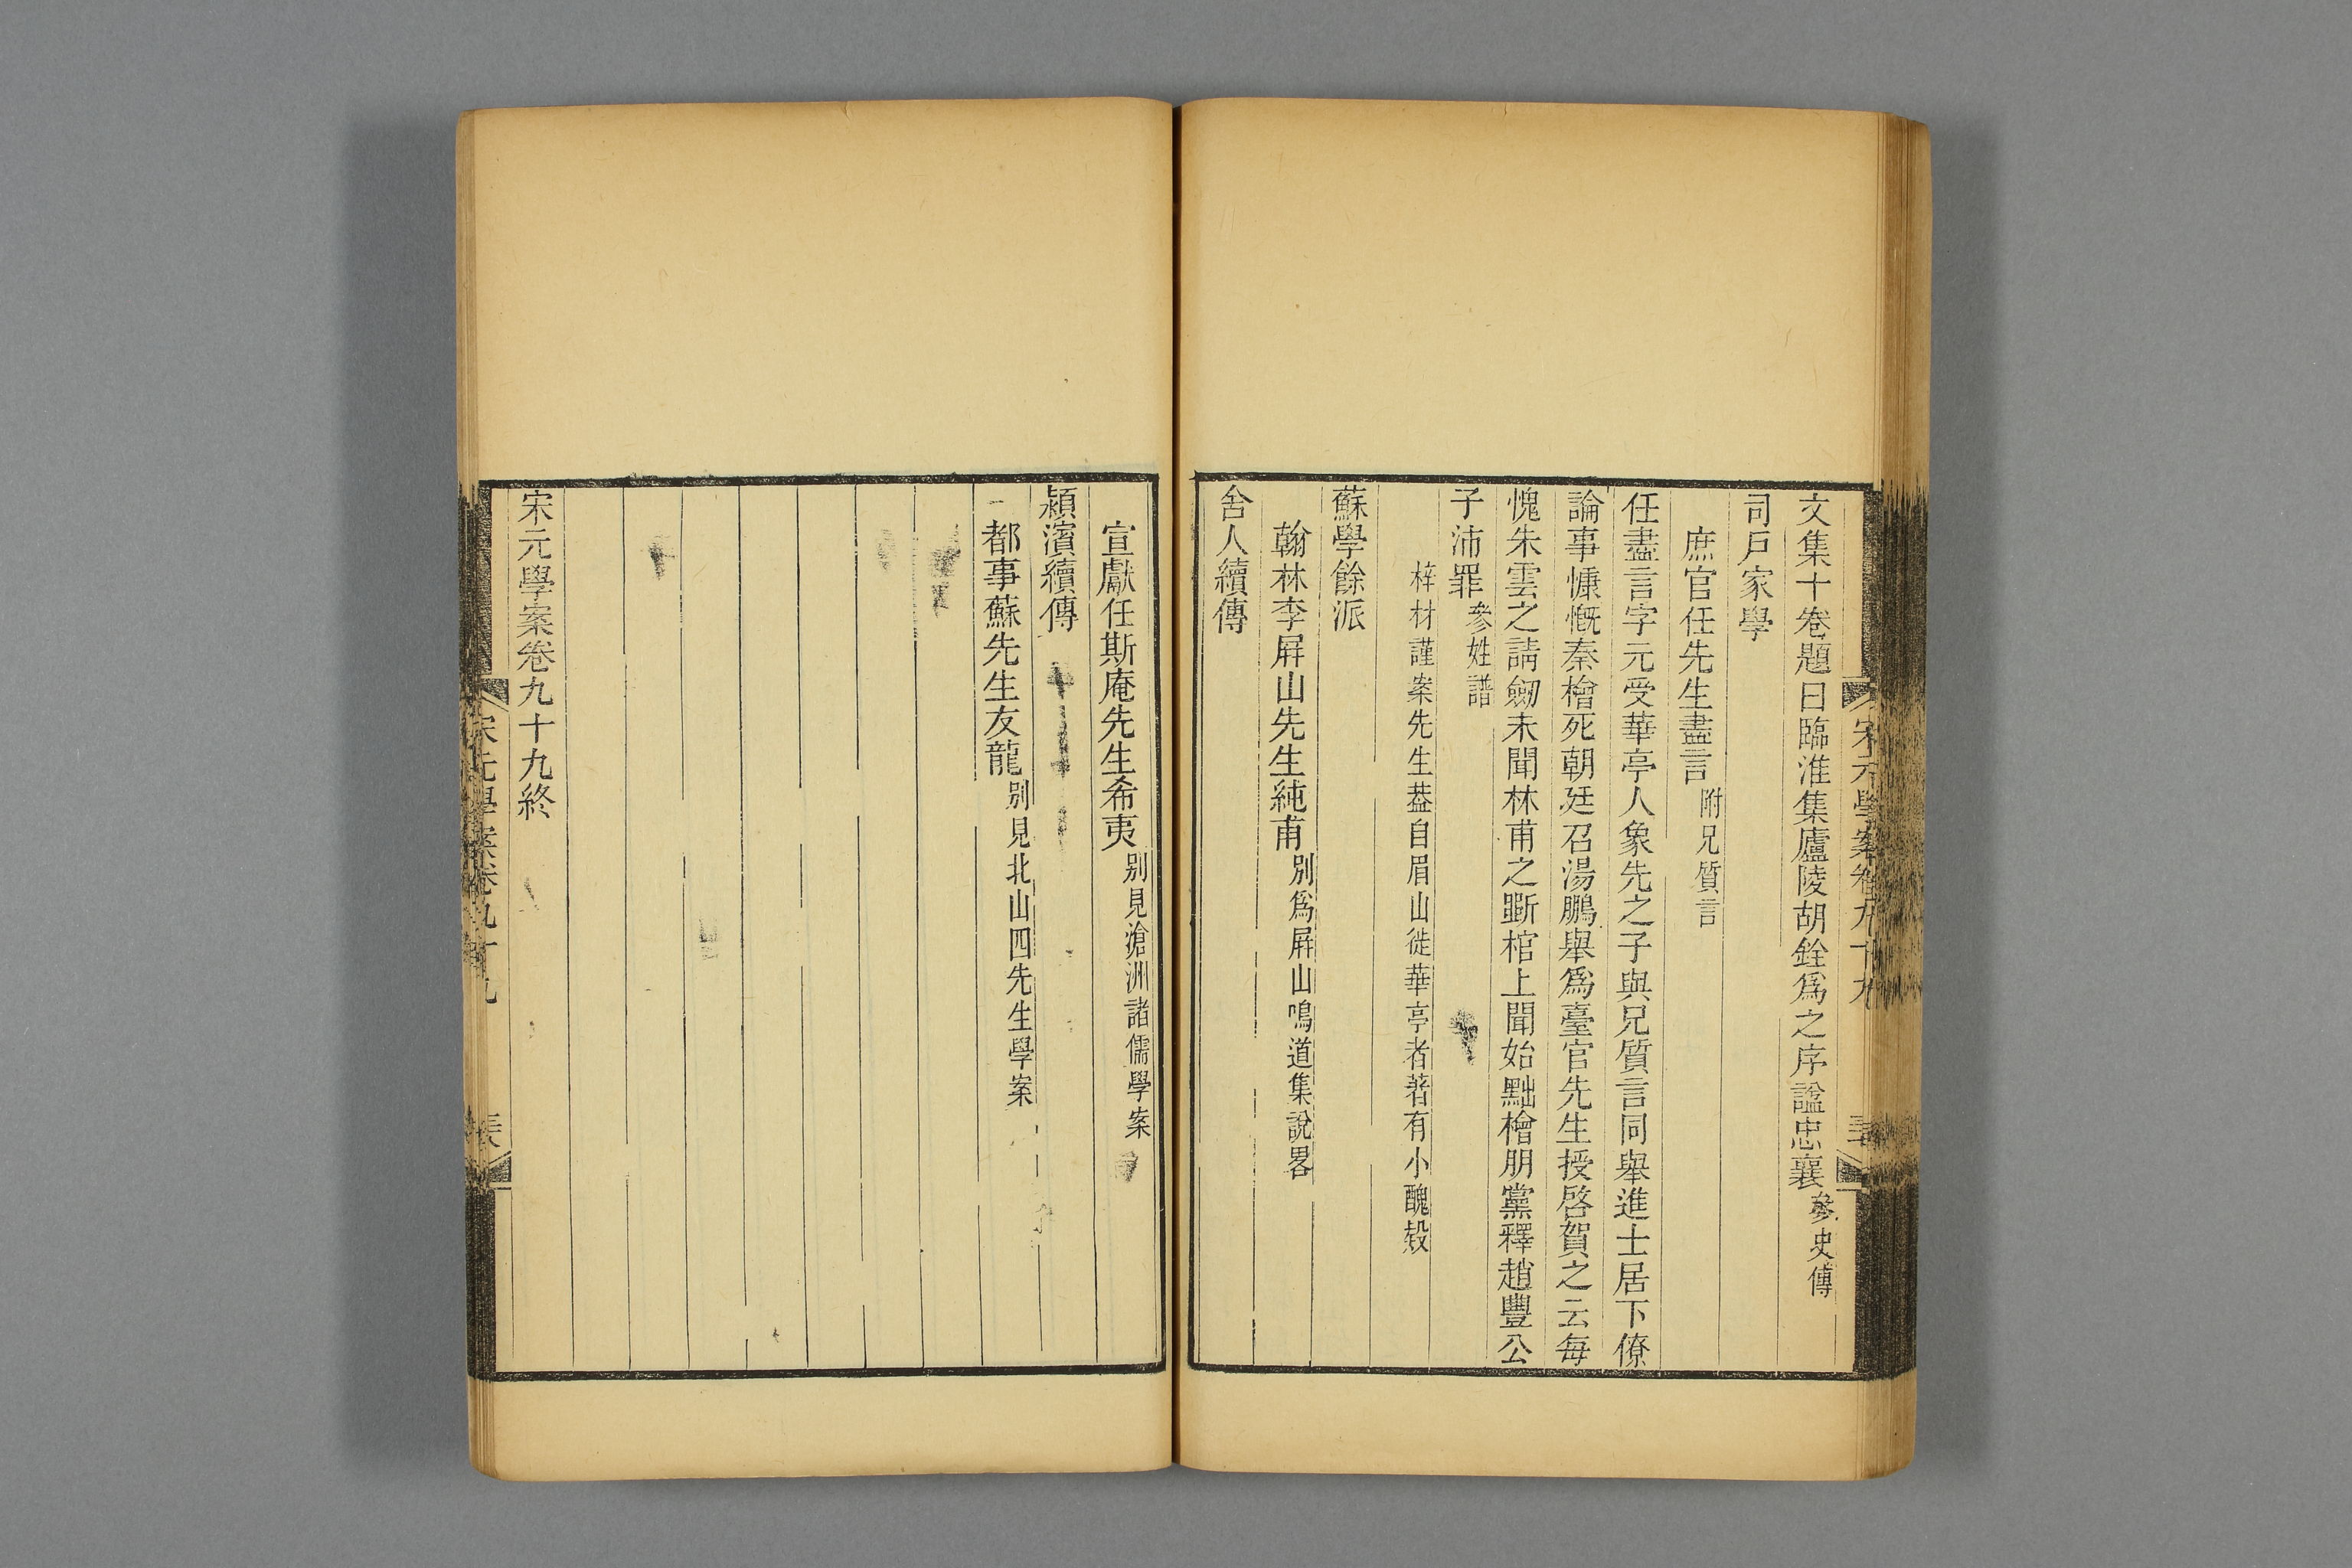 文集十卷題曰臨淮集廬陵胡銓爲之序諡忠襄參史傳
司戶家學
庶官任先生盡言附兄質言
任盡言字元受華亭人象先之子與兄質言同舉進士居下僚
論事慷慨秦檜死朝廷召湯鵬舉爲臺官先生授啓賀之云每
愧朱雲之請劒未聞林甫之斲棺上聞始黜檜朋黨釋趙豐公
子沛罪參姓譜
梓材謹案先生葢自眉山徙華亭者著有小醜殺
蘇學餘派
翰林李屛山先生純甫別爲屛山鳴道集說畧
舍人續傳
宣獻任斯庵先生希夷別見滄洲諸儒學案
潁濱續傳
都事蘇先生友龍別見北山四先生學案
宋元學案卷九十九終
宋元學案卷九十九
宋元學案卷九十九